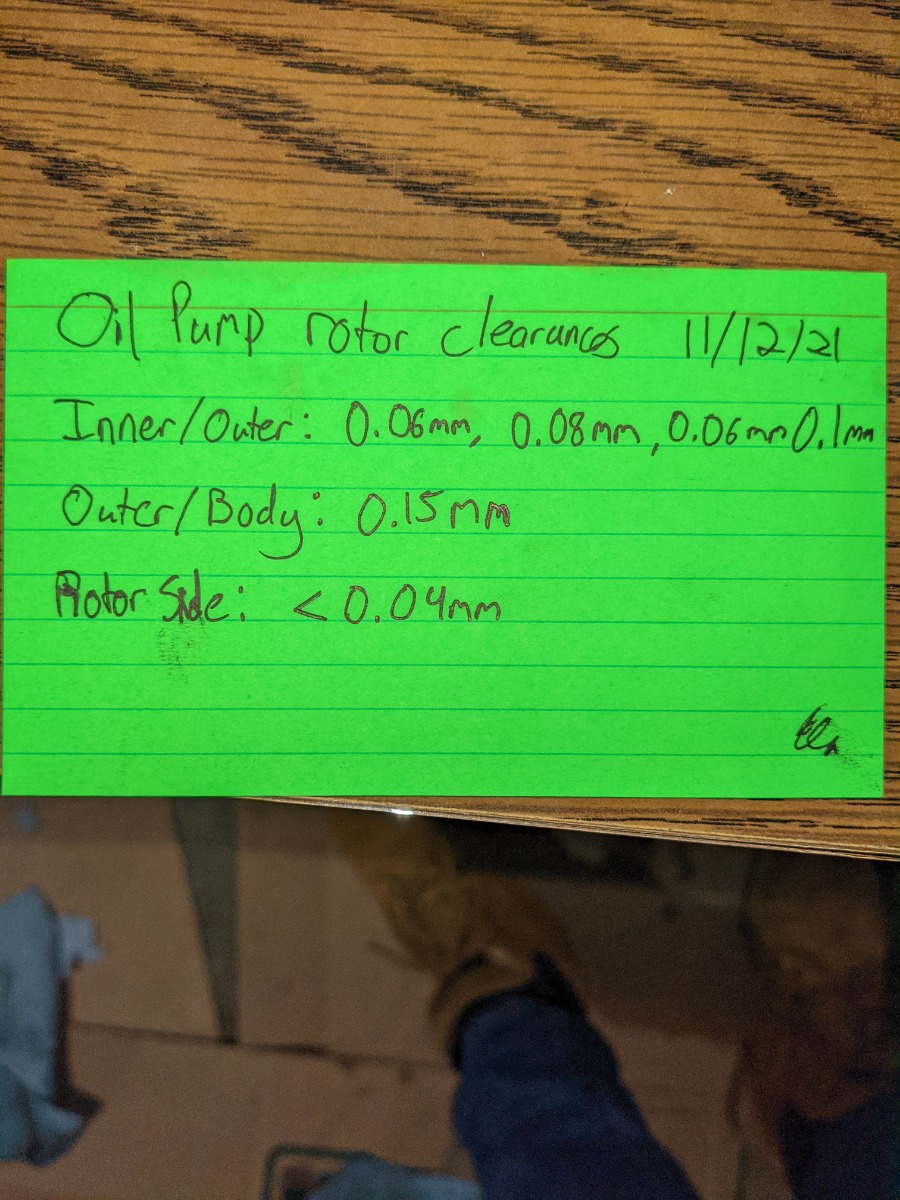 Oil Pump rotor clearances 11/12/21
Inner/Outer: 0.06mm, 0.08mm, 0.06mm 0.1mm
Outer/Body: 0.15mm
Rotor Side: <0.04mm